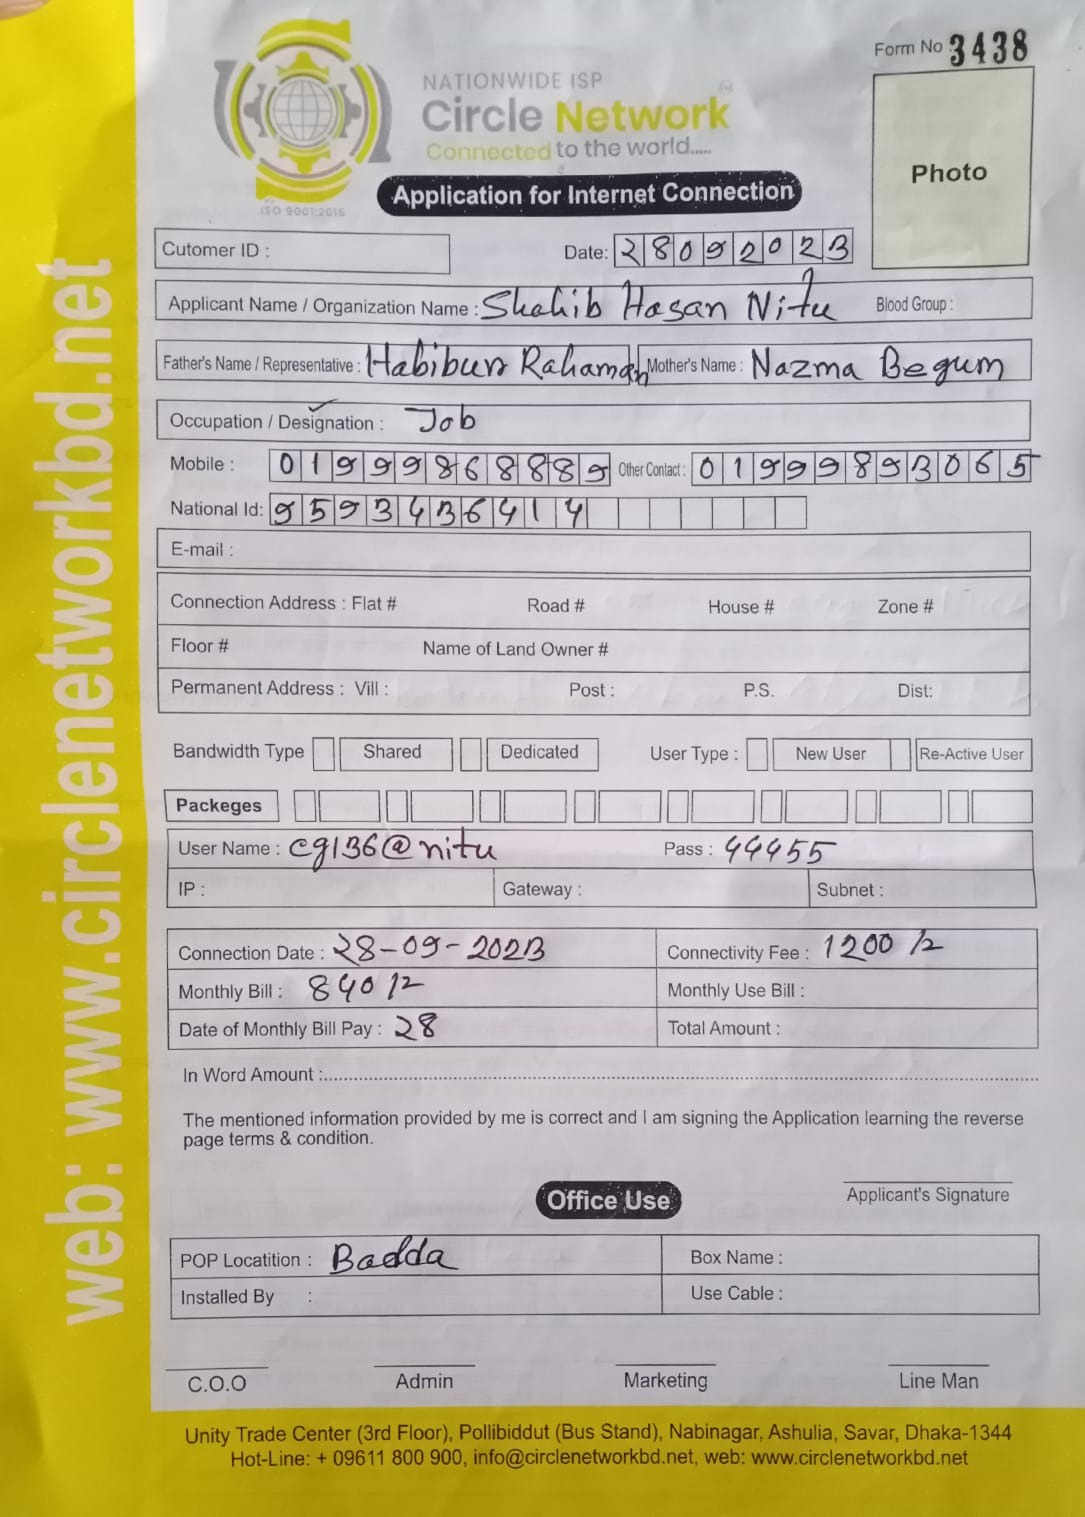 Form No 3438
NATIONWIDE ISP
Circle Network
Connected to the world.....
ISO 9001:2015
Application for Internet Connection
Photo
Cutomer ID :
Date: 28092023
Applicant Name / Organization Name : Shahib Hasan Nitu Blood Group :
Father's Name / Representative : Habibur Rahaman Mother's Name : Nazma Begum
Occupation / Designation : Job
Mobile : 01999868889 Other Contact : 01999893065
National Id: 9593436414
E-mail :
Connection Address : Flat # Road # House # Zone #
Floor # Name of Land Owner #
Permanent Address : Vill : Post : P.S. Dist:
Bandwidth Type Shared Dedicated User Type : New User Re-Active User
Packeges
User Name : cg136@nitu Pass : 44455
IP : Gateway : Subnet :
Connection Date : 28-09-2023 Connectivity Fee : 1200/=
Monthly Bill : 840/= Monthly Use Bill :
Date of Monthly Bill Pay : 28 Total Amount :
In Word Amount :
The mentioned information provided by me is correct and I am signing the Application learning the reverse
page terms & condition.
Applicant's Signature
Office Use
POP Locatition : Badda Box Name :
Installed By : Use Cable :
C.O.O Admin Marketing Line Man
Unity Trade Center (3rd Floor), Pollibiddut (Bus Stand), Nabinagar, Ashulia, Savar, Dhaka-1344
Hot-Line: + 09611 800 900, info@circlenetworkbd.net, web: www.circlenetworkbd.net
web: www.circlenetworkbd.net